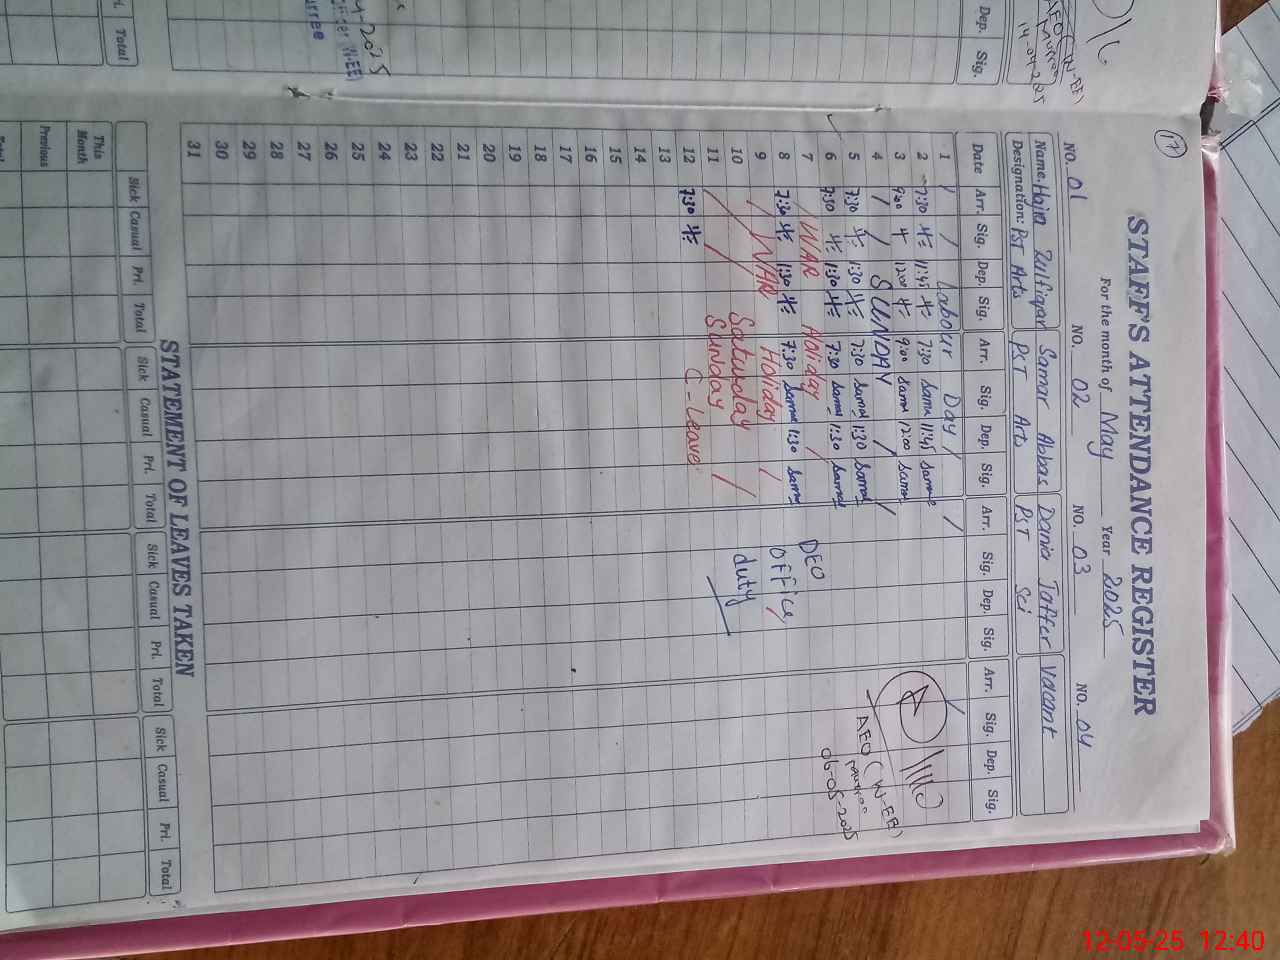 17
STAFF'S ATTENDANCE REGISTER
For the month of May Year 2025
NO. 01 NO. 02 NO. 03 NO. 04
Name. Hajra Zulfiqar Samar Abbas Dania Jaffer Vacant
Designation: PST Arts PST Arts PST Sci
Date Arr. Sig. Dep. Sig. Arr. Sig. Dep. Sig. Arr. Sig. Dep. Sig. Arr. Sig. Dep. Sig.
1 Labour Day
2 7:30 11:45 7:30 Samar 11:45 Samar
3 9:00 12:00 9:00 Samar 12:00 Samar
4 SUNDAY
5 7:30 1:30 7:30 Samar 1:30 Samar
6 7:30 1:30 7:30 Samar 1:30 Samar
7 WAR Holiday DEO
8 7:30 1:30 7:30 Samar 1:30 Samar Office
9 WAR Holiday
10 Saturday duty
11 Sunday
12 7:30 C-Leave
13
14
15
16
17
18
19
20
21
22
23
24
25
26
27
28
29
30
31
AEO (W-EE)
06-05-2025
STATEMENT OF LEAVES TAKEN
Sick Casual Pri. Total Sick Casual Pri. Total Sick Casual Pri. Total Sick Casual Pri. Total
This Month
Previous
Total
Dep. Sig.
AEO (W-EE)
14-04-2025
Pri. Total
12-05-25 12:40